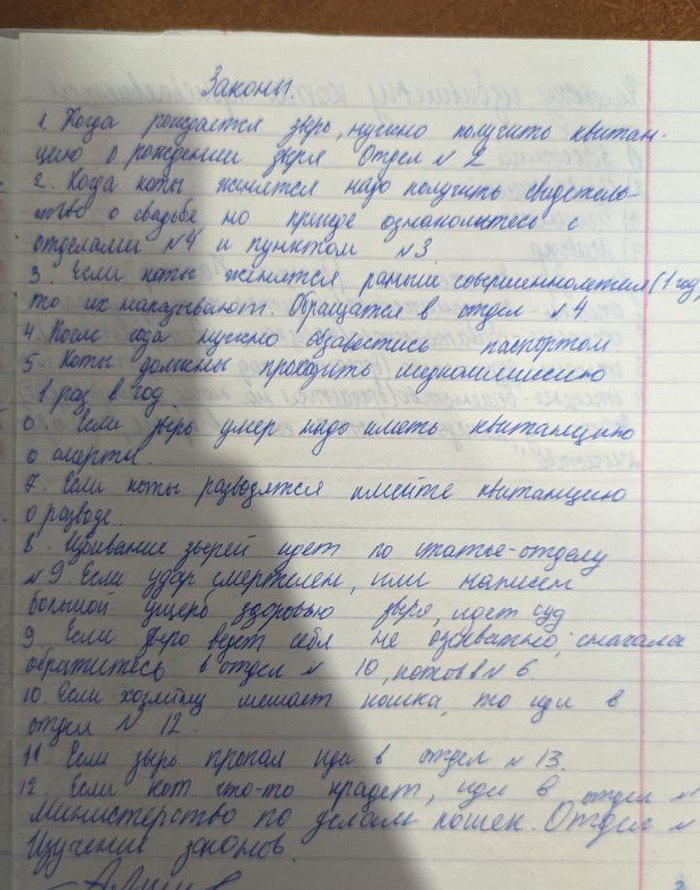 Законы.
1. Когда рождается зверь, нужно получить квитан-
цию о рождении зверя. Отдел № 2
2. Когда коты женятся надо получить свидетель-
тво о свадьбе но прежде ознакомтесь с
отделами №4 и пунктом №3
3. Если коты женятся раньше совершеннолетия (1 год
то их наказывают. Обращатся в отдел №4
4. После года нужно обзавестись паспортом
5. Коты должны проходить медкомиссию
1 раз в год
6 Если зверь умер надо имать квитанцию
о смерти.
7. Если коты разводятся имейте квитанцию
о разводе.
8. Избивание зверей идет по статье-отделу
№9 Если удар смертелен, или нанесен
большой ущерб здоровью зверя, идет суд
9 Если зверь ведет себя не адекватно, сначала
обратитесь в отдел № 10, потом в № 6.
10. Если хозяину мешает кошка, то иди в
отдел № 12.
11. Если зверь пропал иди в отдел № 13.
12. Если кот что-то крадет, иди в отдел №
Министерство по делам кошек. Отдел №
Изучения законов.